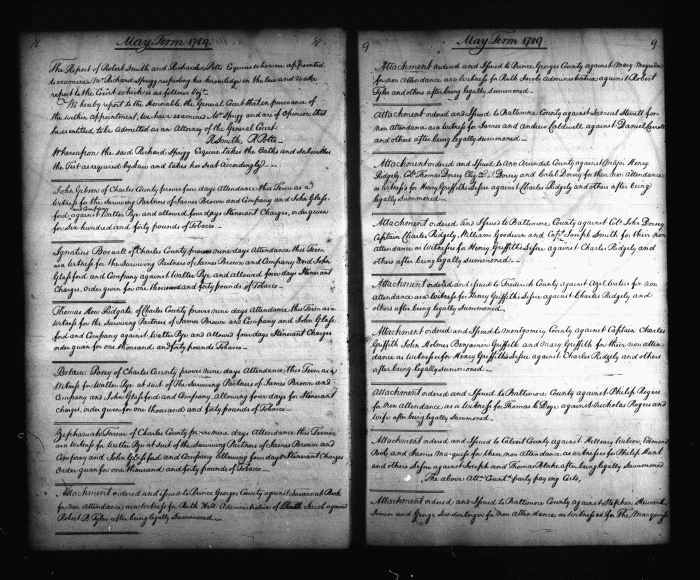 8 May Term 1789. 8
The Report of Robert Smith and Richard Potts Esquires who were appointed
to examine Mr Richard Sprigg respecting his knowledge in the law and make
report to the Court which is as follows by.
We hereby report to the Honorable the General Court that in pursuance of
the within appointment, we have examined Mr Sprigg and are of opinion that
he is entitled to be Admitted as an Attorney of the General Court
R. Smith, R Potts
Whereupon the said Richard Sprigg Esquire takes the Oaths and subscribes
the Test as required by Law and takes his Seat Accordingly
John Gibson of Charles County proves four days Attendance this Term as a
Witness for the Surviving Partners of James Brown and Company and John Glass-
ford and Company against Walter Pye and allowed four days Itinerant Charges, order given
for Six hundred and forty pounds of Tobacco
Ignatius Boswell of Charles County proves nine days Attendance this Term
as a Witness for the Surviving Partners of James Brown and Company and John
Glassford and Company against Walter Pye and allowed four days Itinerant
Charges, Order given for one thousand and forty pounds of Tobacco
Thomas How Ridgate of Charles County proves nine days Attendance this Term as a
Witness for the Surviving Partners of James Brown and Company and John Glass-
ford and Company against Walter Pye and Allowed four days Itinerant Charges
order given for one thousand and forty pounds of Tobacco
Posey of Charles County proves nine days Attendance this Term as a
Witness for Walter Pye at suit of The Surviving Partners of James Brown and
Company and John Glassford and Company, Allowing four days for Itinerant
Charges, order given for one thousand and forty pounds of Tobacco
Zephaniah Turner of Charles County proves nine days Attendance this Term
as a Witness for Walter Pye at suit of the Surviving Partners of James Brown and
Company and John Glassford and Company allowing four days Itinerant Charges
Order given for one thousand and forty pounds of Tobacco
Attachment ordered and issued to Prince Georges County against Susannah
for non Attendance as a witness for Ruth Hall Administratrix of Jacob against
Robert B. Tyler after being legally Summoned
9 May Term 1789 9
Attachment ordered and Issued to Prince Georges County against Mary
for non Attendance as a Witness for Ruth Jacob Administratrix against Robert
Tyler and others after being legally summoned
Attachment ordered and Issued to Baltimore County against Samuel Sterett for
non Attendance as Witness for James and Andrew Caldwell against Daniel
and others after being legally summoned
Attachment ordered and Issued to Ann Arundel County against Major Henry
Ridgely, Colo Thomas Dorsey and Caleb Dorsey for their non Attendance
as Witnesses for Henry Griffiths Lessee against Charles Ridgely and others after being
legally Summoned
Attachment ordered and Issued to Baltimore County against Colo John Dorsey
Captain Charles Ridgely, William Goodwin and Capt. Joseph Smith for their non
attendance as Witnesses for Henry Griffiths Lessee against Charles Ridgely and
others after being legally summoned
Attachment ordered and issued to Frederick County against for non
attendance as a Witness for Henry Griffiths Lessee against Charles Ridgely and
others after being legally summoned
Attachment ordered and Issued to Montgomery County against Captain Charles
Griffith John Holmes Benjamin Griffith and Mary Griffith for their non atten-
dance as Witnesses for Henry Griffiths Lessee against Charles Ridgely and others
after being legally summoned
Attachment ordered and Issued to Baltimore County against Philip Rogers
for Non Attendance as a Witness for Thomas Doye against Nicholas Rogers and
wife after being legally Summoned
Attachment ordered and Issued to Calvert County against Hillery Wilson, Edmund
and James for non attendance as witnesses for Philip Hunt
and others Lessee against Joseph and Thomas Blake after being legally Summoned
The above party paying Costs,
Attachment ordered, and Issued to Baltimore County against Stephen Stewart
Junior and George for non Attendance as Witnesses for The Marquis